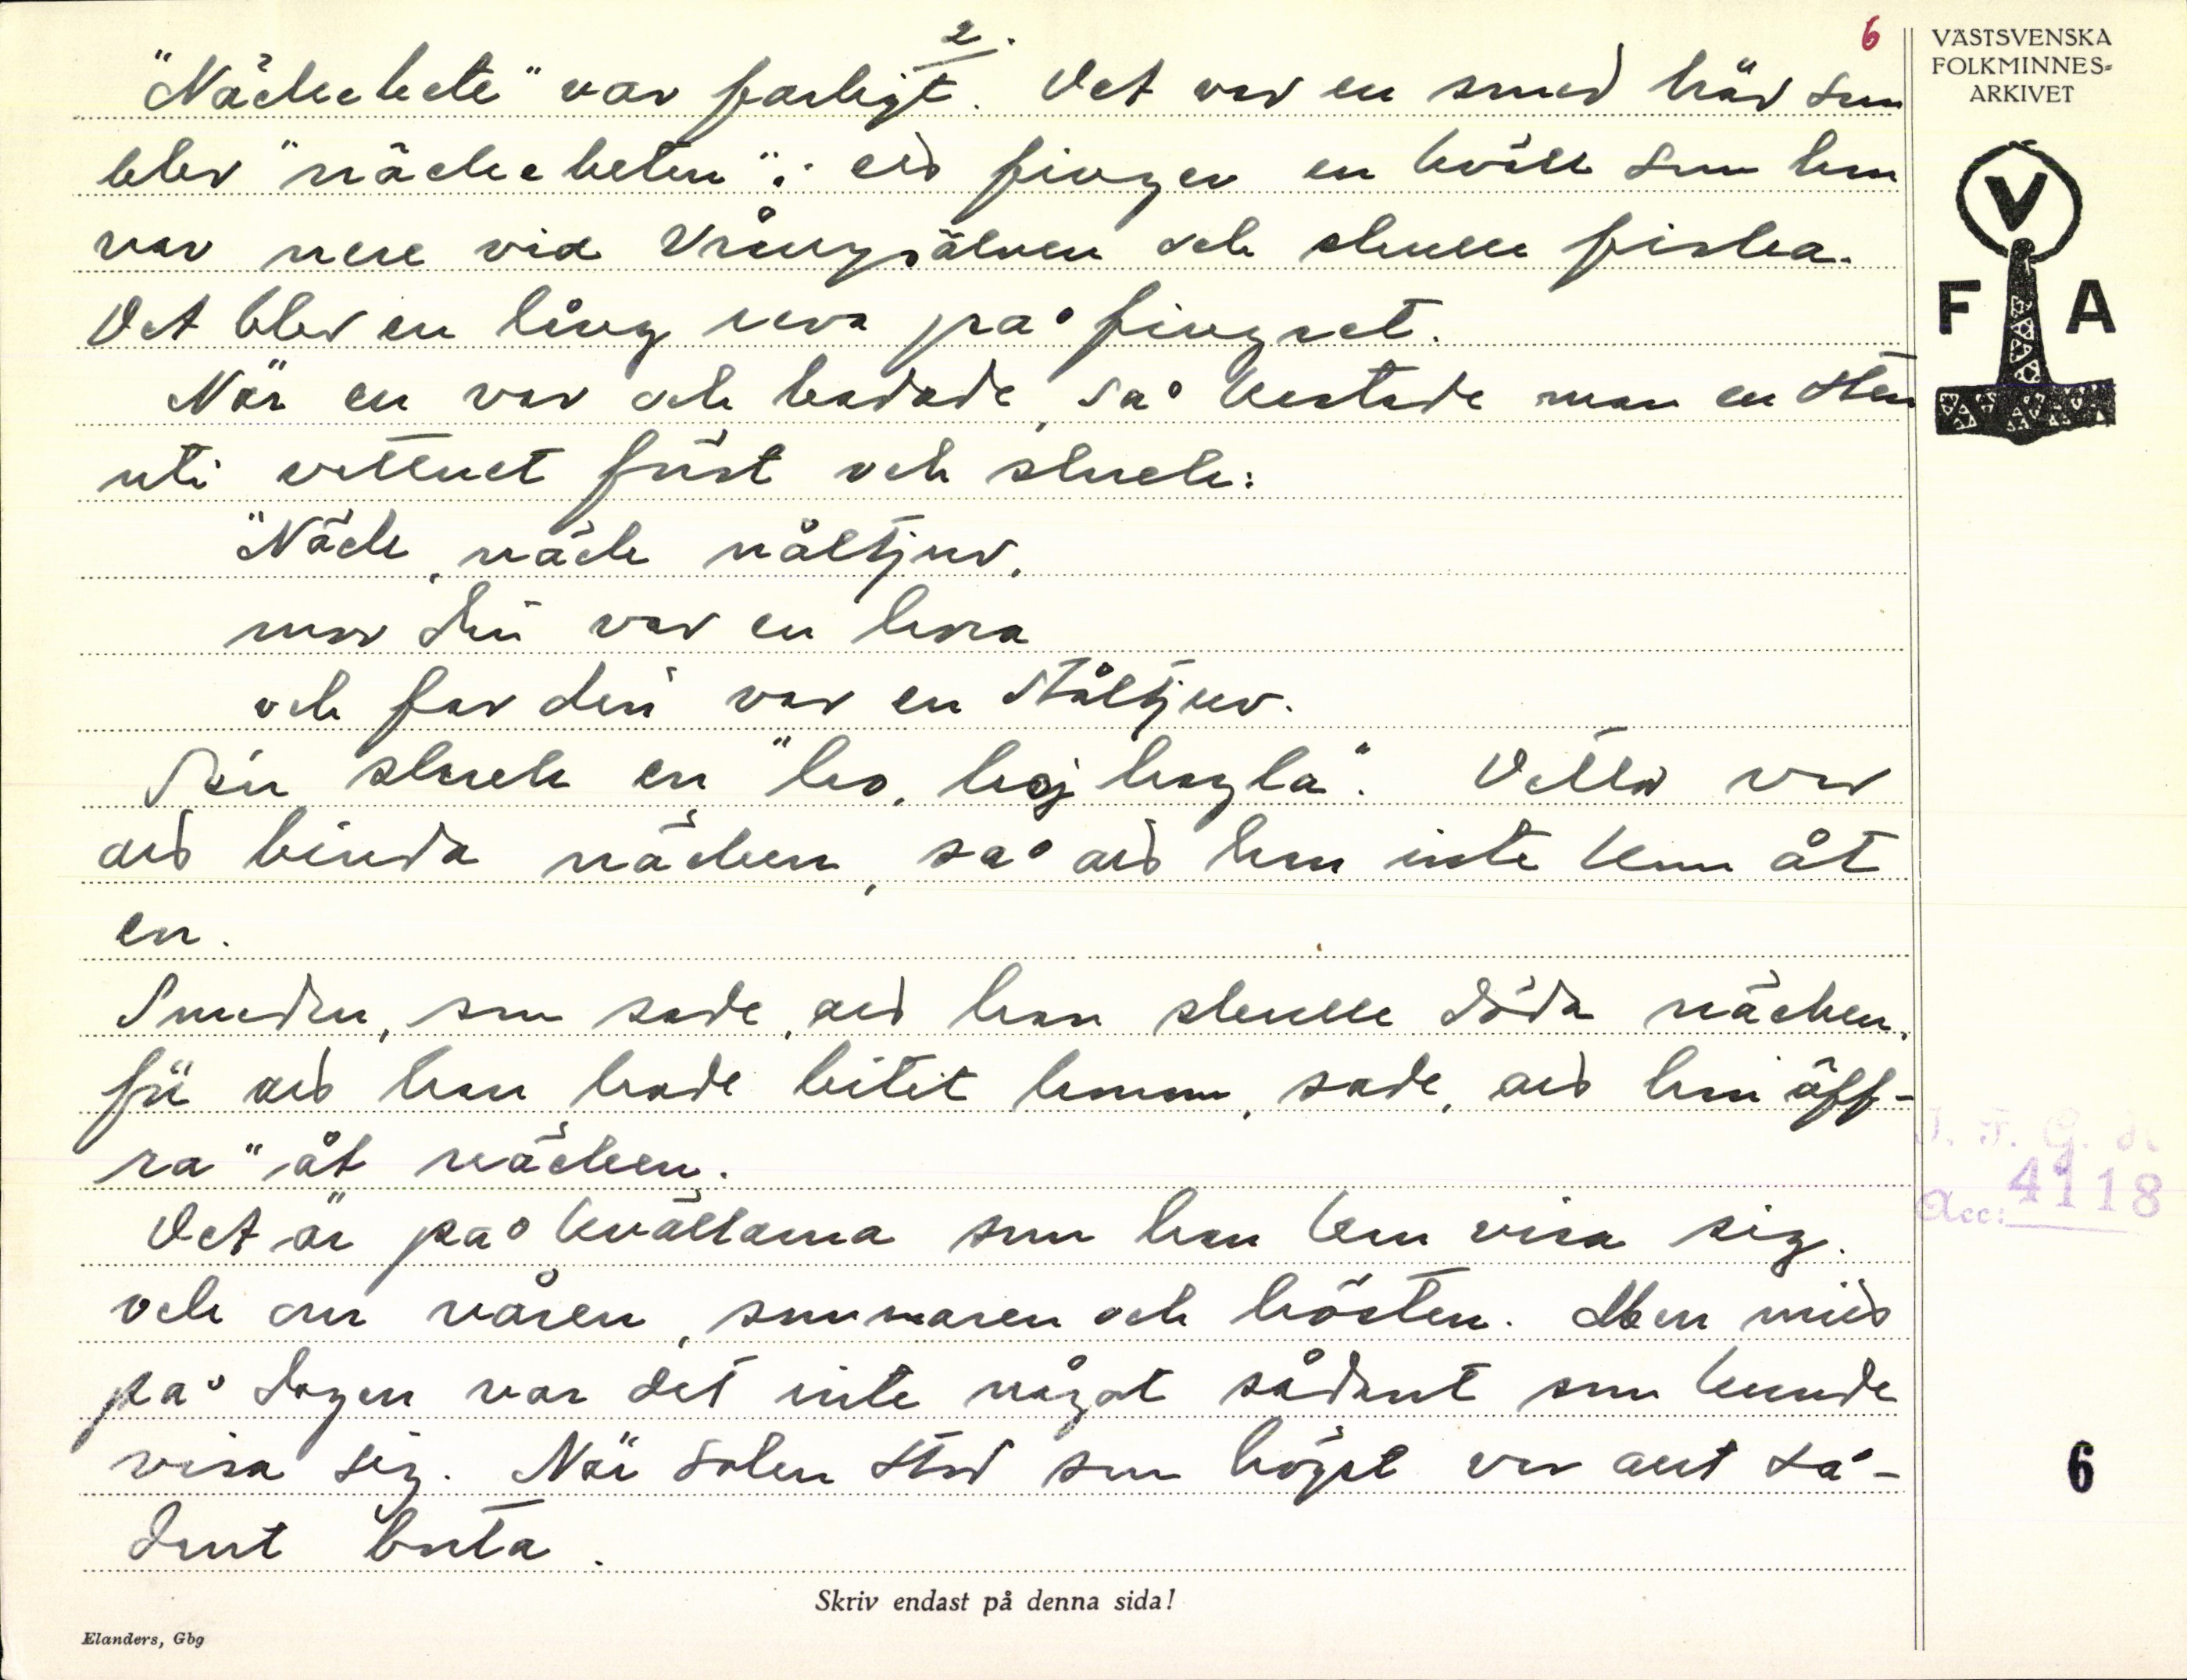 2.
6
VÄSTSVENSKA
FOLKMINNES-
ARKIVET
V
F A
"Näckebete" var farligt. Det var en smed här som
blev "näckebeten" i ett finger en kväll som han
var nere vid Vrångsälven och skulle fiska.
Det blev en lång reva på fingret.
När en var och badade, så kastade man en sten
uti vattnet först och skrek:
"Näck, näck nåltjuv,
mor din var en hora
och far din var en ståltjuv.
Sen skrek en "ho, hoj hogla". Detta var
att binda näcken, så att han inte kom åt
en.
Smeden, som sade, att han skulle döda näcken,
för att han hade bitit honom, sade, att han "off-
ra" åt näcken.
Det är på kvällarna som han kan visa sig.
och om våren, sommaren och hösten. Men mitt
på dagen var det inte något sådant som kunde
visa sig. När solen stod som högst var allt så-
dant borta.
J. F. G. d.
Acc: 4118
6
Skriv endast på denna sida!
Elanders, Gbg